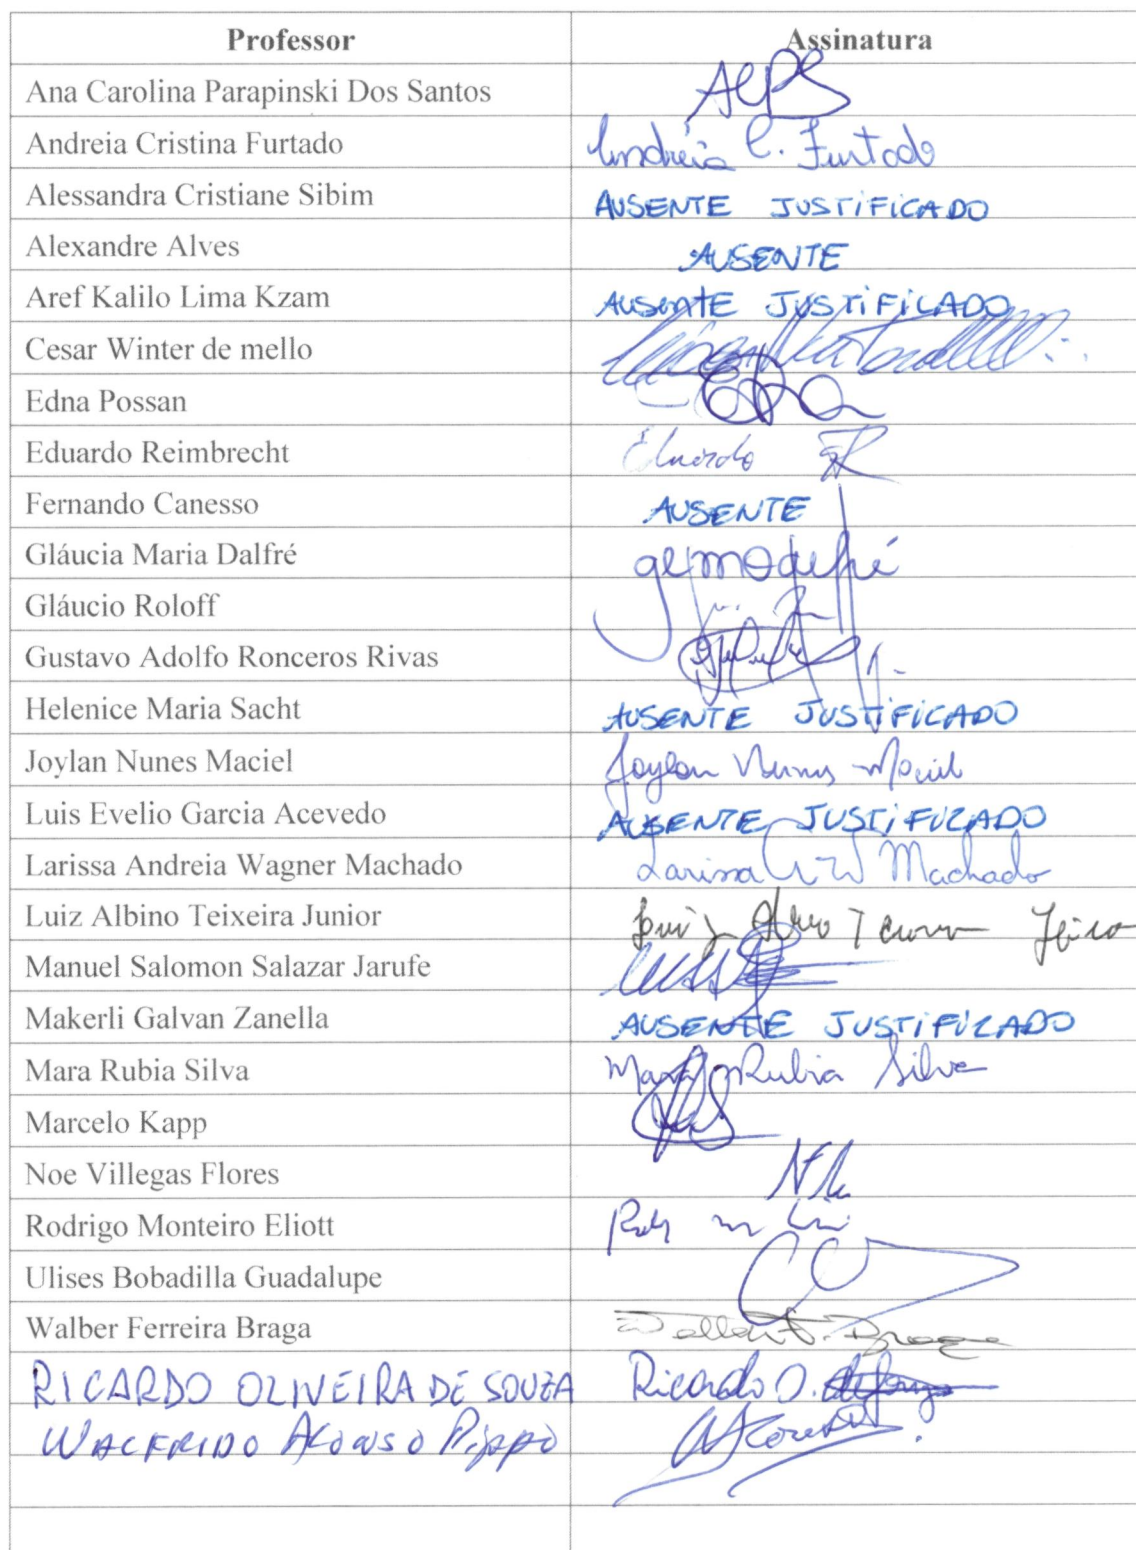 Professor Assinatura
Ana Carolina Parapinski Dos Santos ACPS
Andreia Cristina Furtado Andréia C. Furtado
Alessandra Cristiane Sibim AUSENTE JUSTIFICADO
Alexandre Alves AUSENTE
Aref Kalilo Lima Kzam AUSENTE JUSTIFICADO
Cesar Winter de mello
Edna Possan
Eduardo Reimbrecht Eduardo
Fernando Canesso AUSENTE
Gláucia Maria Dalfré
Gláucio Roloff
Gustavo Adolfo Ronceros Rivas
Helenice Maria Sacht AUSENTE JUSTIFICADO
Joylan Nunes Maciel Joylan Nunes Maciel
Luis Evelio Garcia Acevedo AUSENTE JUSTIFICADO
Larissa Andreia Wagner Machado Larissa A W Machado
Luiz Albino Teixeira Junior
Manuel Salomon Salazar Jarufe
Makerli Galvan Zanella AUSENTE JUSTIFICADO
Mara Rubia Silva Mara Rubia Silva
Marcelo Kapp
Noe Villegas Flores
Rodrigo Monteiro Eliott
Ulises Bobadilla Guadalupe
Walber Ferreira Braga Walber F. Braga
RICARDO OLIVEIRA DE SOUZA Ricardo O. de Souza
WALFRIDO ALONSO Pippo